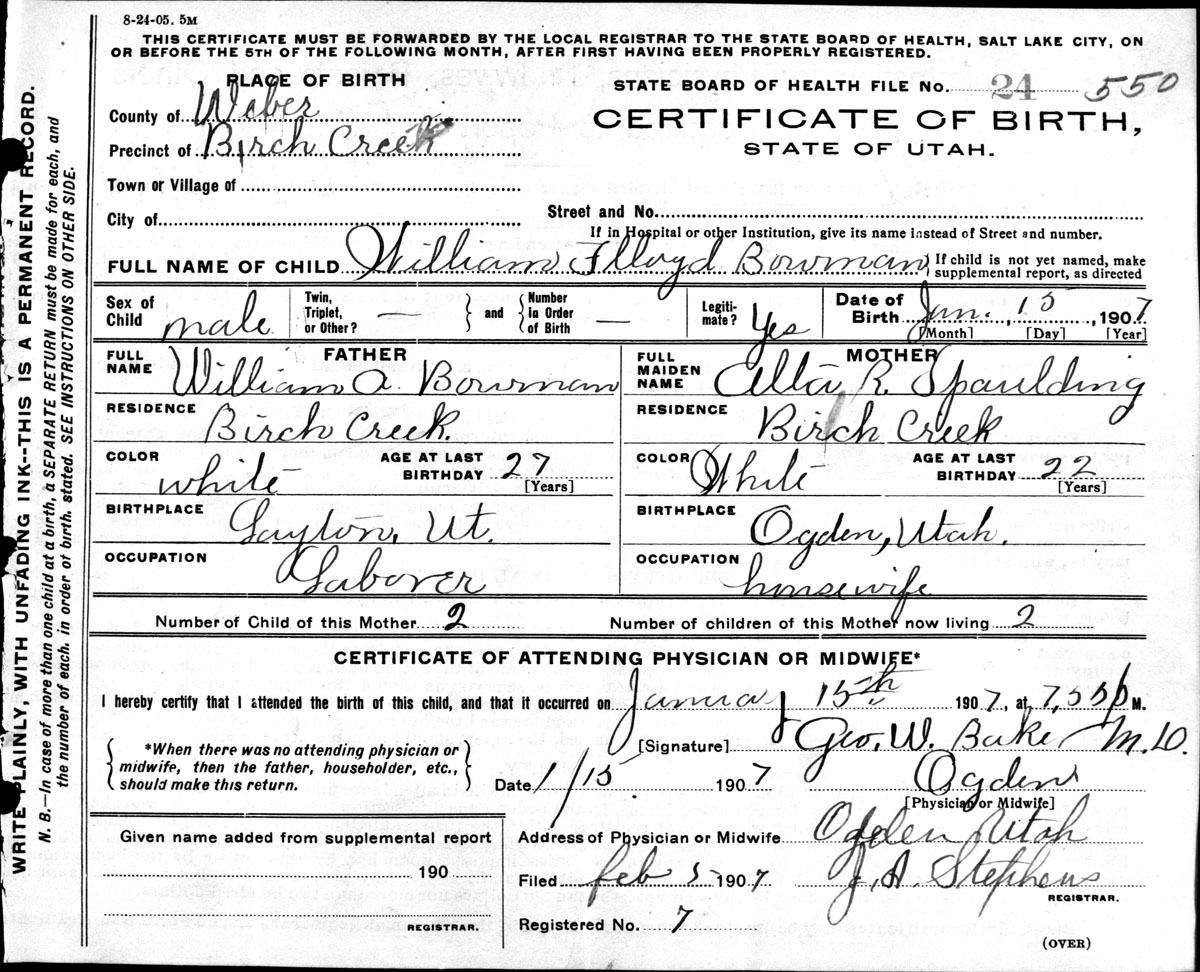 8-24-05. 5M
THIS CERTIFICATE MUST BE FORWARDED BY THE LOCAL REGISTRAR TO THE STATE BOARD OF HEALTH, SALT LAKE CITY, ON
OR BEFORE THE 5TH OF THE FOLLOWING MONTH, AFTER FIRST HAVING BEEN PROPERLY REGISTERED.
PLACE OF BIRTH
STATE BOARD OF HEALTH FILE No. 24 550
County of Weber
CERTIFICATE OF BIRTH,
Precinct of Birch Creek
STATE OF UTAH.
Town or Village of
City of
Street and No.
If in Hospital or other Institution, give its name instead of Street and number.
FULL NAME OF CHILD William Flloyd Bowman
If child is not yet named, make
supplemental report, as directed
Sex of Child male
Twin, Triplet, or Other? —
and
Number in Order of Birth —
Legiti-mate? Yes
Date of Birth Jan. 15, 1907
[Month] [Day] [Year]
FATHER
FULL NAME William A. Bowman
MOTHER
FULL MAIDEN NAME Alta R. Spaulding
RESIDENCE Birch Creek.
RESIDENCE Birch Creek
COLOR white AGE AT LAST BIRTHDAY 27 [Years]
COLOR White AGE AT LAST BIRTHDAY 22 [Years]
BIRTHPLACE Layton, Ut.
BIRTHPLACE Ogden, Utah.
OCCUPATION Laborer
OCCUPATION housewife
Number of Child of this Mother 2
Number of children of this Mother now living 2
CERTIFICATE OF ATTENDING PHYSICIAN OR MIDWIFE*
I hereby certify that I attended the birth of this child, and that it occurred on January 15th 1907, at 7,55 p M.
*When there was no attending physician or
midwife, then the father, householder, etc.,
should make this return.
[Signature] Geo. W. Baker M.D.
Date 1/15 1907 Ogden
[Physician or Midwife]
Given name added from supplemental report
190
REGISTRAR.
Address of Physician or Midwife Ogden Utah
Filed Feb 5 1907 J. A. Stephens
REGISTRAR.
Registered No. 7
(OVER)
WRITE PLAINLY, WITH UNFADING INK--THIS IS A PERMANENT RECORD.
N. B.—In case of more than one child at a birth, a SEPARATE RETURN must be made for each, and
the number of each, in order of birth, stated. SEE INSTRUCTIONS ON OTHER SIDE.